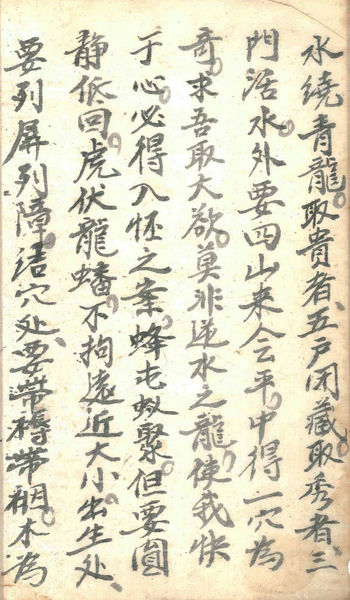 水繞青龍取貴者、五戶闭藏取秀者、三
門活水外要四山来会云平中得一穴為
奇求吾取大欲莫非逆水之龍使我快
于心必得入怀之案、蜂屯蚁聚但要圓
静低回虎伏龍蟠不拘遠近大小出生处、
要列屏列障结穴处要带褥带裀木為